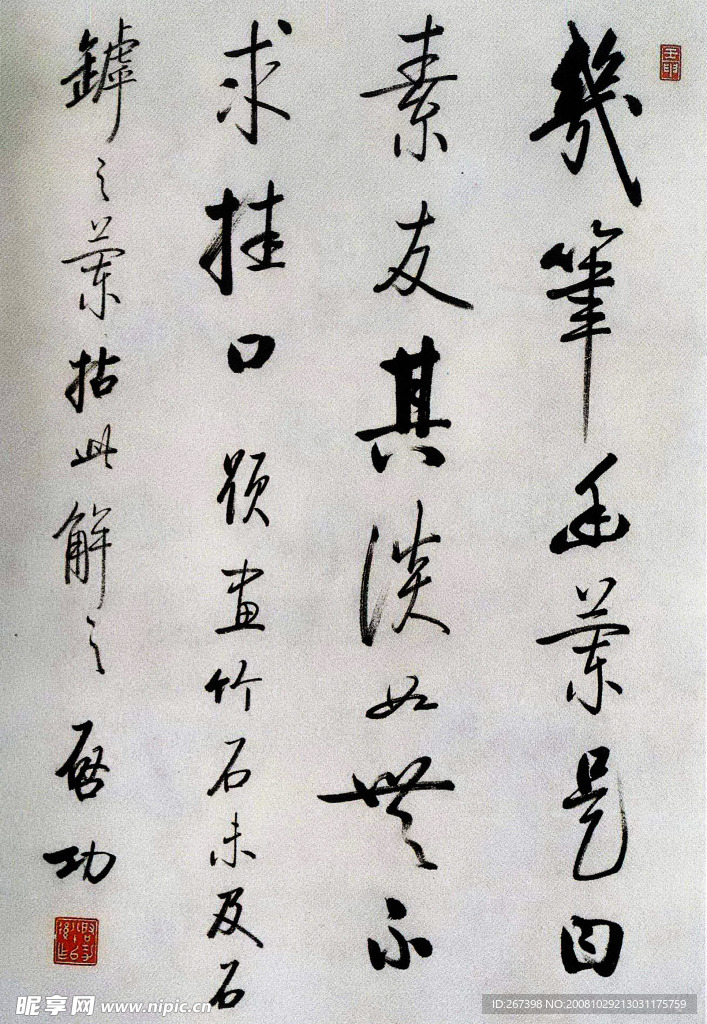 幾筆幽蘭是曰
素友其淡如無不
求挂口 題畫竹石未及石
罅之蘭拈此解之 啟功
昵享网 www.nipic.cn
ID:267398 NO:20081029213031175759